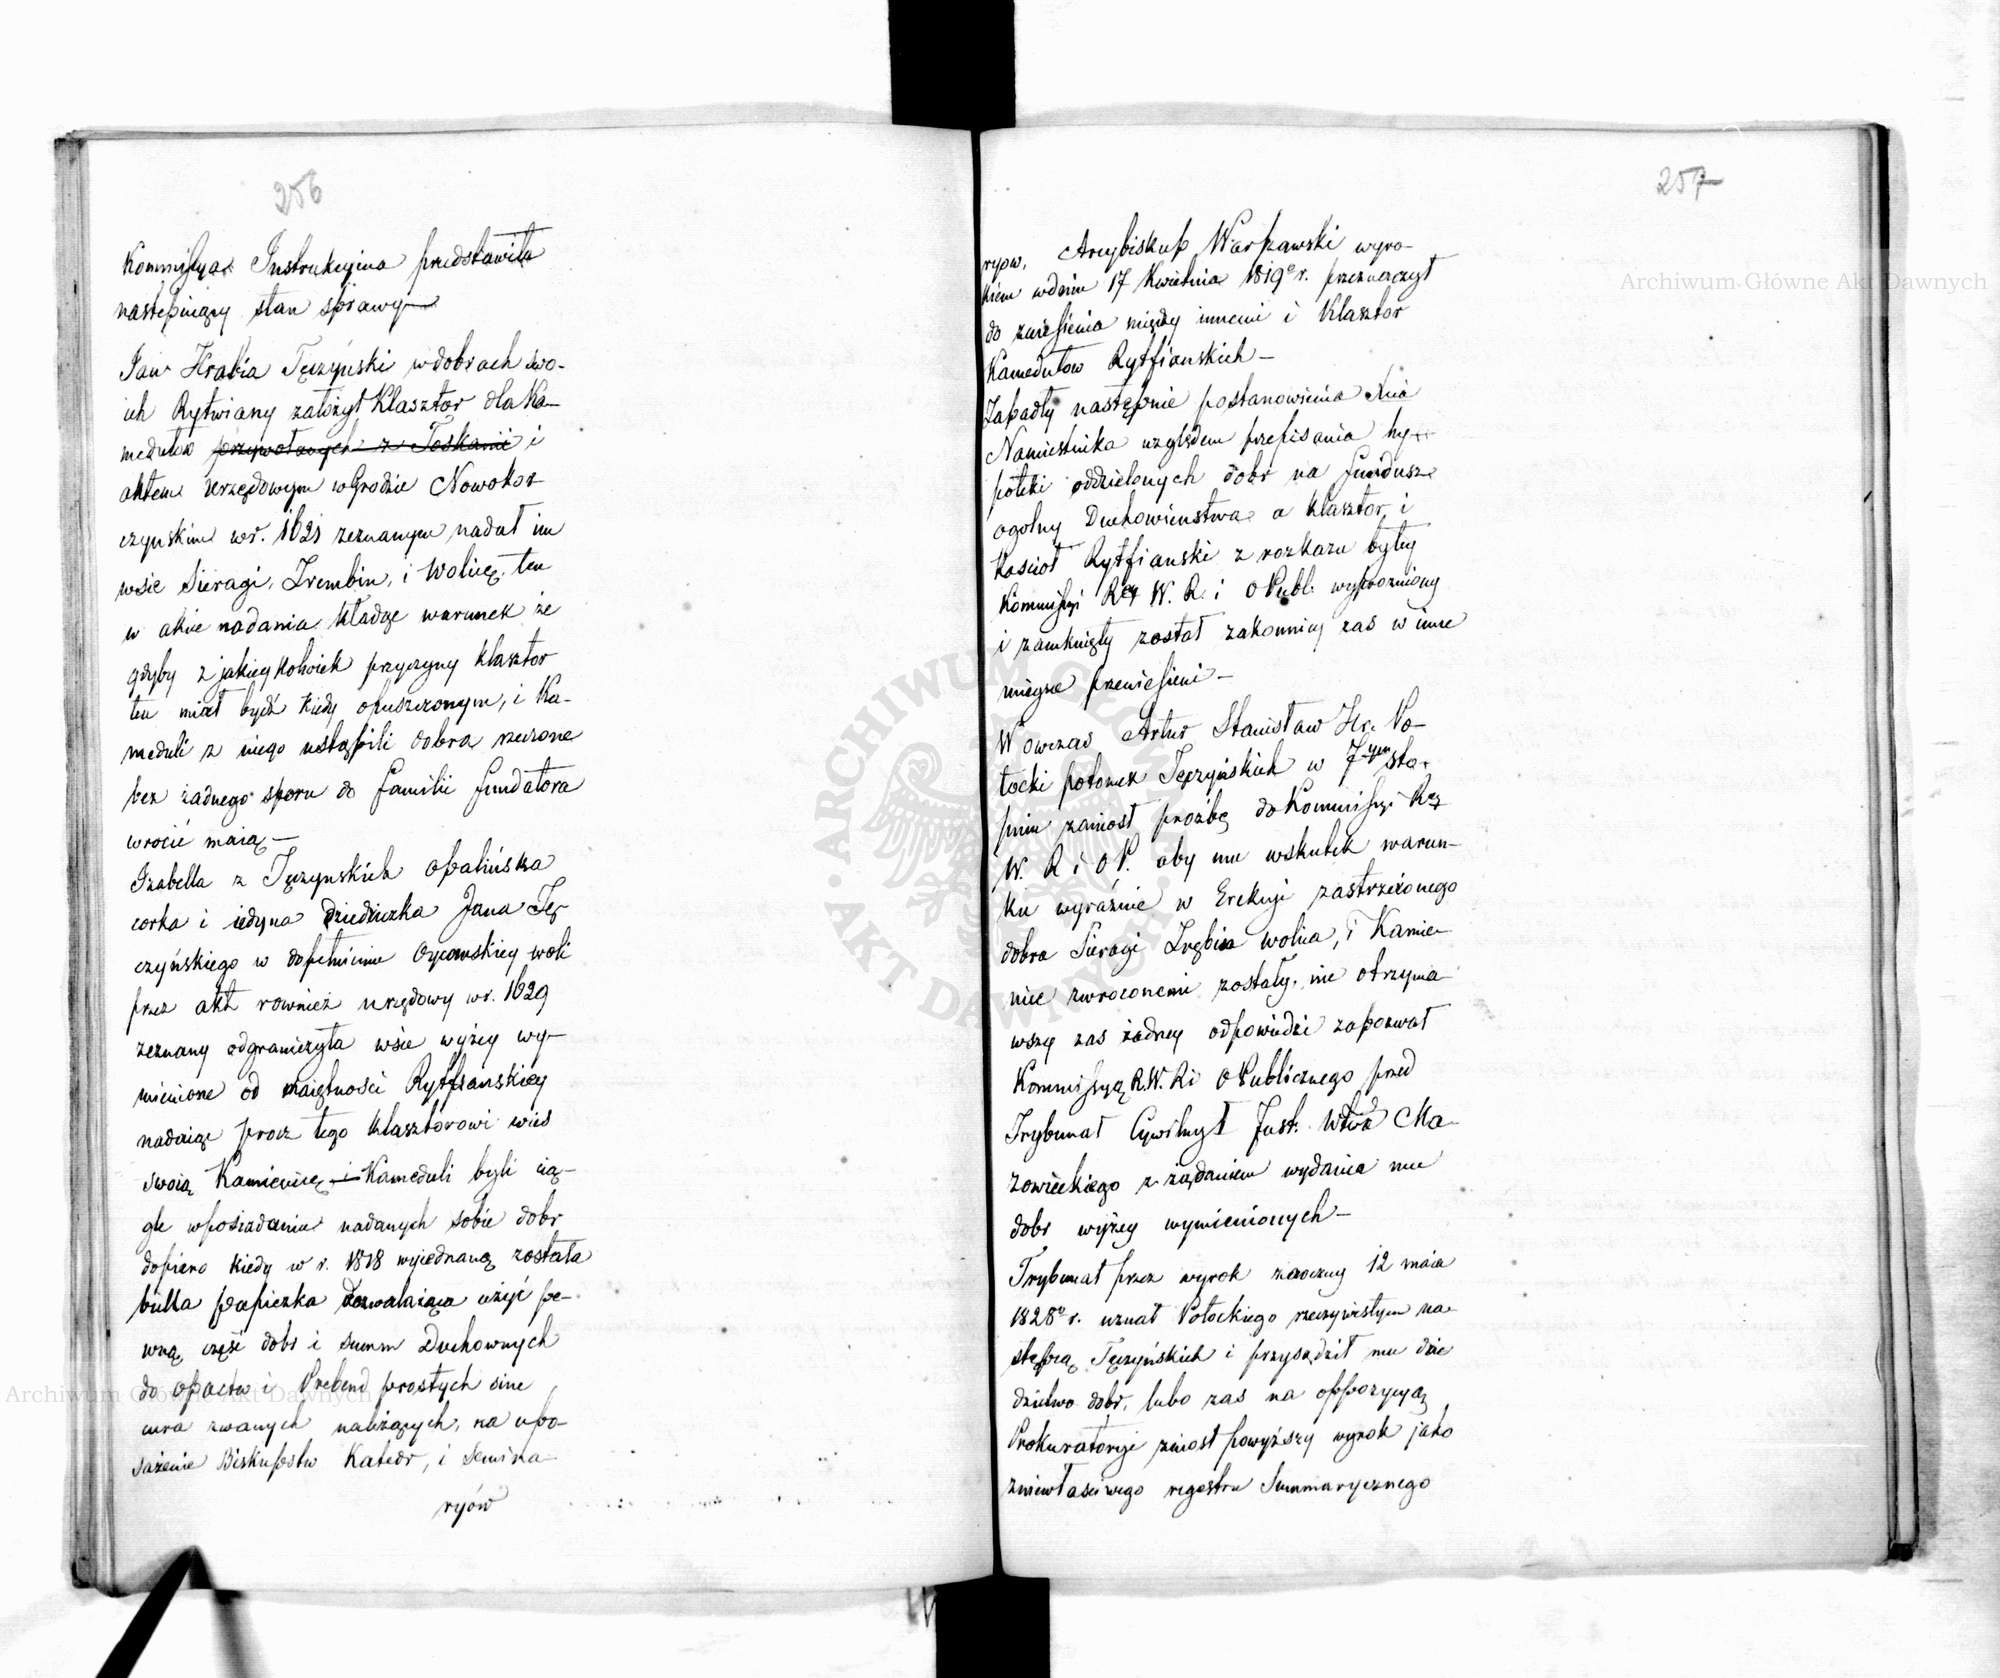 256
Kommissya Instrukcyina przedstawiła
następuiący stan sprawy—
Jan Hrabia Tęczyński w dobrach swo-
ich Rytwiany założył Klasztor dla Ka-
medułow przywołanych z Toskanii i
aktem urzędowym w Grodzie Nowokor-
czynskim w r. 1621 zeznanym nadał im
wsie Sieragi, Trembin, i Wolicę, ten
w akcie nadania kładąc warunek że
gdyby z jakieykolwiek przyczyny klasztor
ten miał bydź kiedy opuszczonym, i Ka-
meduli z niego ustąpili dobra rzeczone
bez żadnego sporu do Familii Fundatora
wrocić maią—
Izabella z Tęczynskich Opalińska
corka i iedyna dziedziczka Jana Tę-
czyńskiego w dopełnieniu Oycowskiey woli
przez akt rownież urzędowy w r. 1629
zeznany odgraniczyła wsie wyżey wy-
mienione od maiętności Rytffianskiey
nadaiąc procz tego klasztorowi wieś
swoią Kamienicę — i Kameduli byli cią-
gle w posiadaniu nadanych sobie dobr
dopiero kiedy w r. 1818 wyiednaną została
bulla papiezka dozwalaiąca użyć pe-
wną część dobr i summ Duchownych
do opactw i Prebend prostych sine
cura zwanych należących, na upo-
sażenie Biskupstw Katedr, i semina-
ryów
257
ryow, Arcybiskup Warszawski wyro-
kiem w dniu 17 Kwietnia 1819º r. przeznaczył
do zniesienia między innemi i Klasztor
Kamedułow Rytffianskich—
Zapadły następnie postanowienia Xcia
Namiestnika względem przepisania hy-
poteki oddzielonych dobr na fundusz
ogolny Duchowieństwa a klasztor i
Kościoł Rytffianski z rozkazu byłey
Kommissyi Rząd W. R. i O Publ: wyprożniony
i zamknięty został zakonnicy zas w inne
mieysce przeniesieni—
Wowczas Artur Stanisław Hr. Po-
tocki potomek Tęczyńskich w 7ym sto-
pniu zaniosł prożbę do Kommissyi Rzą
W. R i O P. aby mu wskutek warun-
ku wyraźnie w Erekcyi zastrzeżonego
dobra Sieragi Trębin wolica, i Kamie-
nice zwroconemi zostały, nie otrzyma-
wszy zas żadney odpowiedzi zapozwał
Kommissyą R. W. R i O Publicznego przed
Trybunał Cywilny I Inst: Wdwa Ma-
zowieckiego z żądaniem wydania mu
dobr wyżey wymienionych—
Trybunał przez wyrok zaoczny 12 maia
1828º r. uznał Potockiego rzeczywistym na-
stępcą Tęczyńskich i przysądził mu dzie
dzictwo dobr, lubo zas na oppozycyą
Prokuratoryi zniosł powyższy wyrok jako
z niewłaściwego regestru Summarycznego
Archiwum Główne Akt Dawnych
Archiwum Główne Akt Dawnych
ARCHIWUM GŁÓWNE · AKT DAWNYCH ·